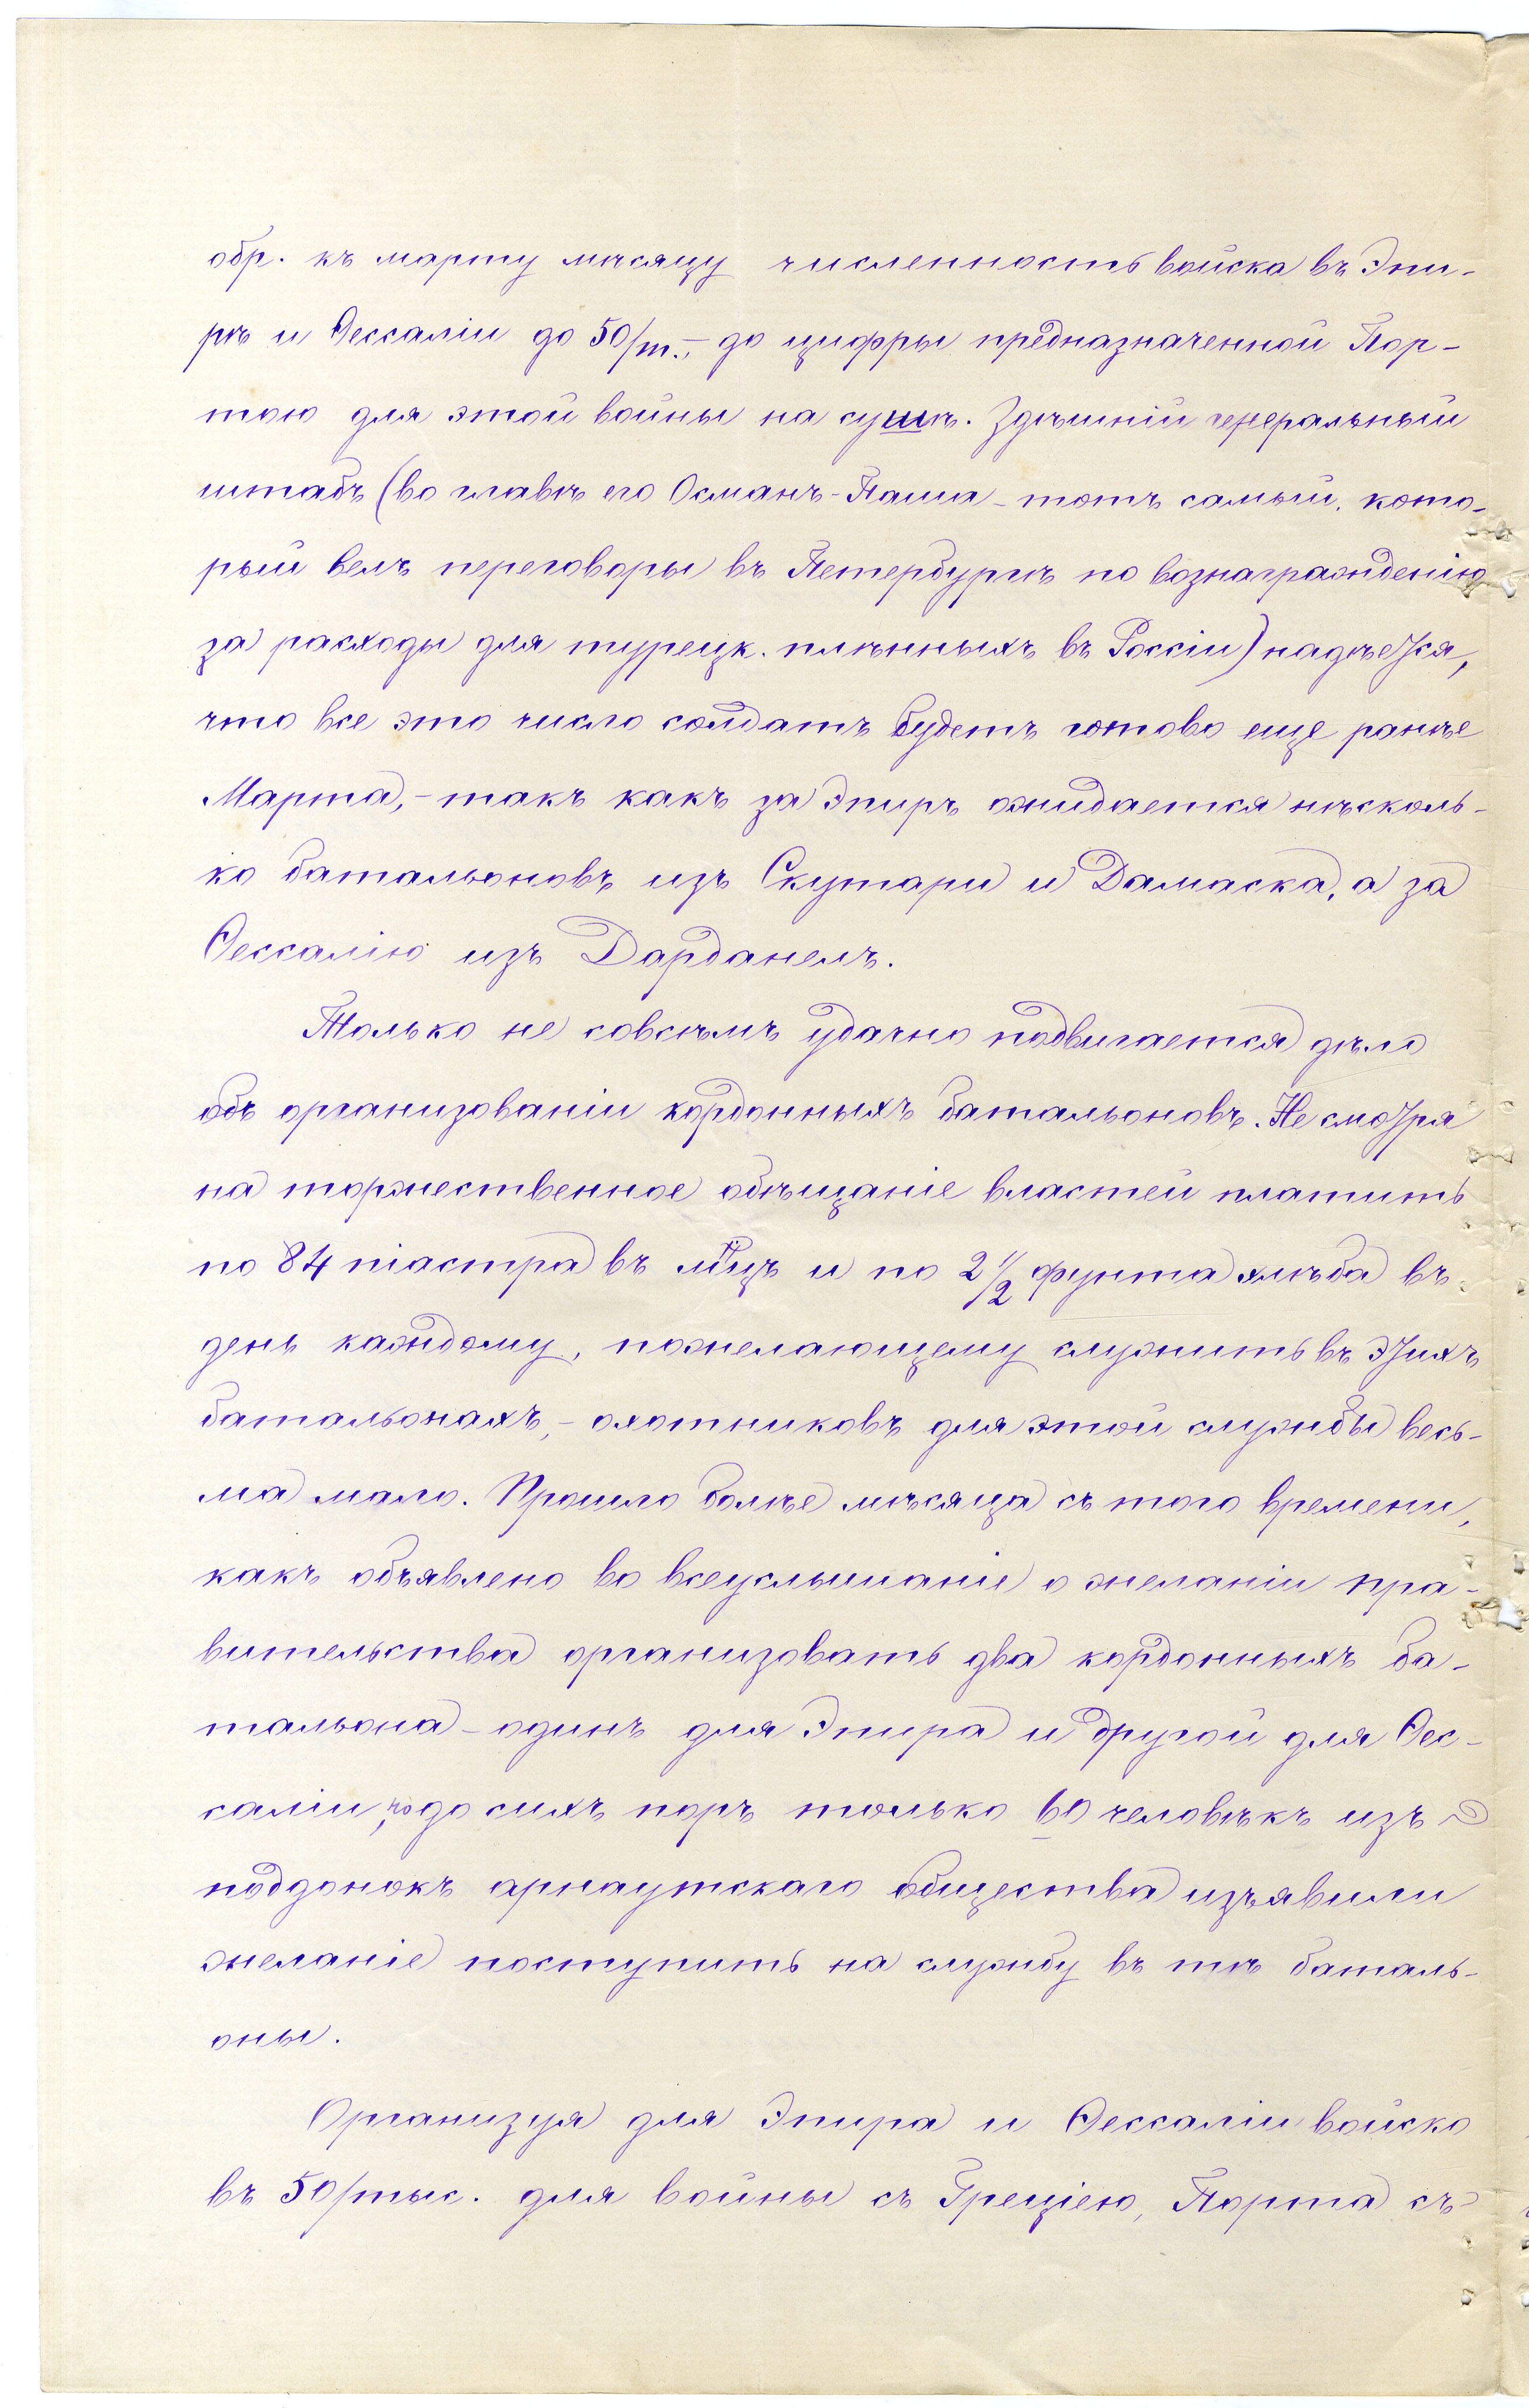 обр. къ марту мѣсяцу численность войска въ Эпи-
рѣ и Ѳессаліи до 50/т.,- до цифры предназначенной Пор-
тою для этой войны на сушѣ. Здѣшній генеральный
штабъ (во главѣ его Османъ-Паша - тотъ самый, кото-
рый велъ переговоры въ Петербургѣ по вознагражденію
за расходы для турецк. плѣнныхъ въ Россіи) надѣется,
что все это число солдатъ будетъ готово еще ранѣе
Марта,- такъ какъ за Эпиръ ожидается нѣсколь-
ко батальоновъ изъ Скутари и Дамаска, а за
Ѳессалію изъ Дарданелъ.
Только не совсѣмъ удачно подвигается дѣло
объ организованіи кордонныхъ батальоновъ. Не смотря
на торжественное обѣщаніе властей платить
по 84 піастра въ мцъ и по 2 1/2 фунта хлѣба въ
день каждому, пожелающему служить въ этихъ
батальонахъ,- охотниковъ для этой службы весь-
ма мало. Прошло болѣе мѣсяца съ того времени,
какъ объявлено во всеуслышаніе о желаніи пра-
вительства организовать два кордонныхъ ба-
тальона - одинъ для Эпира и другой для Ѳес-
саліи, но до сихъ поръ только 60 человѣкъ изъ
поддонокъ арнаутскаго общества изъявили
желаніе поступить на службу въ тѣ баталь-
оны.
Организуя для Эпира и Ѳессаліи войско
въ 50/тыс. для войны съ Греціею, Порта съ